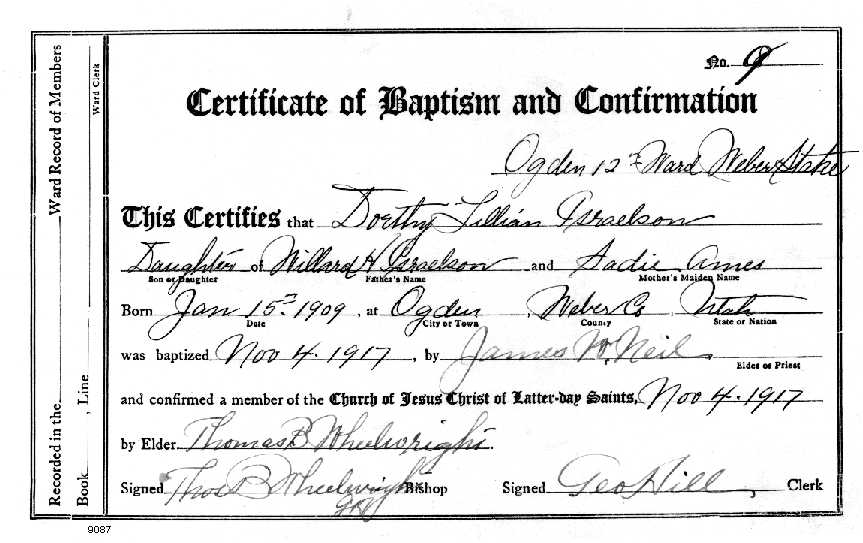 No. 9
Certificate of Baptism and Confirmation
Ogden 12th Ward Weber Stake
This Certifies that Dorthy Lillian Israelson
Daughter of Willard H Israelson and Sadie Ames
Son or Daughter Father's Name Mother's Maiden Name
Born Jan 15th 1909, at Ogden, Weber Co, Utah
Date City or Town County State or Nation
was baptized Nov 4. 1917, by James W. Neil
Elder or Priest
and confirmed a member of the Church of Jesus Christ of Latter-day Saints, Nov 4. 1917
by Elder Thomas B Wheelwright.
Signed Thos B Wheelwright Bishop Signed Geo Hill, Clerk
Recorded in the Ward Record of Members
Book, Line Ward Clerk
9087